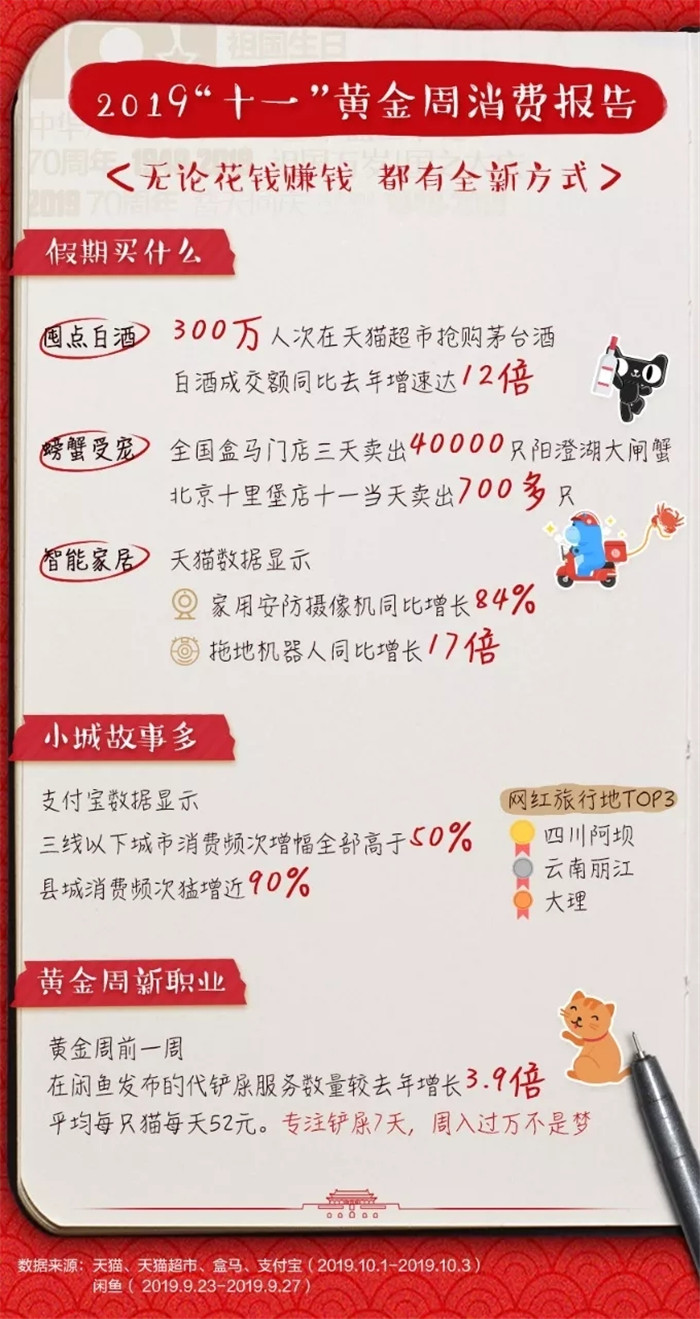 祖国生日
70周年
2019 70周年
2019“十一”黄金周消费报告
<无论花钱赚钱 都有全新方式>
假期买什么
囤点白酒
300万人次在天猫超市抢购茅台酒
白酒成交额同比去年增速达12倍
螃蟹受宠
全国盒马门店三天卖出40000只阳澄湖大闸蟹
北京十里堡店十一当天卖出700多只
智能家居
天猫数据显示
家用安防摄像机同比增长84%
拖地机器人同比增长17倍
小城故事多
支付宝数据显示
三线以下城市消费频次增幅全部高于50%
县城消费频次猛增近90%
网红旅行地TOP3
四川阿坝
云南丽江
大理
黄金周新职业
黄金周前一周
在闲鱼发布的代铲屎服务数量较去年增长3.9倍
平均每只猫每天52元。专注铲屎7天，周入过万不是梦
数据来源：天猫、天猫超市、盒马、支付宝（2019.10.1-2019.10.3）
闲鱼（2019.9.23-2019.9.27）